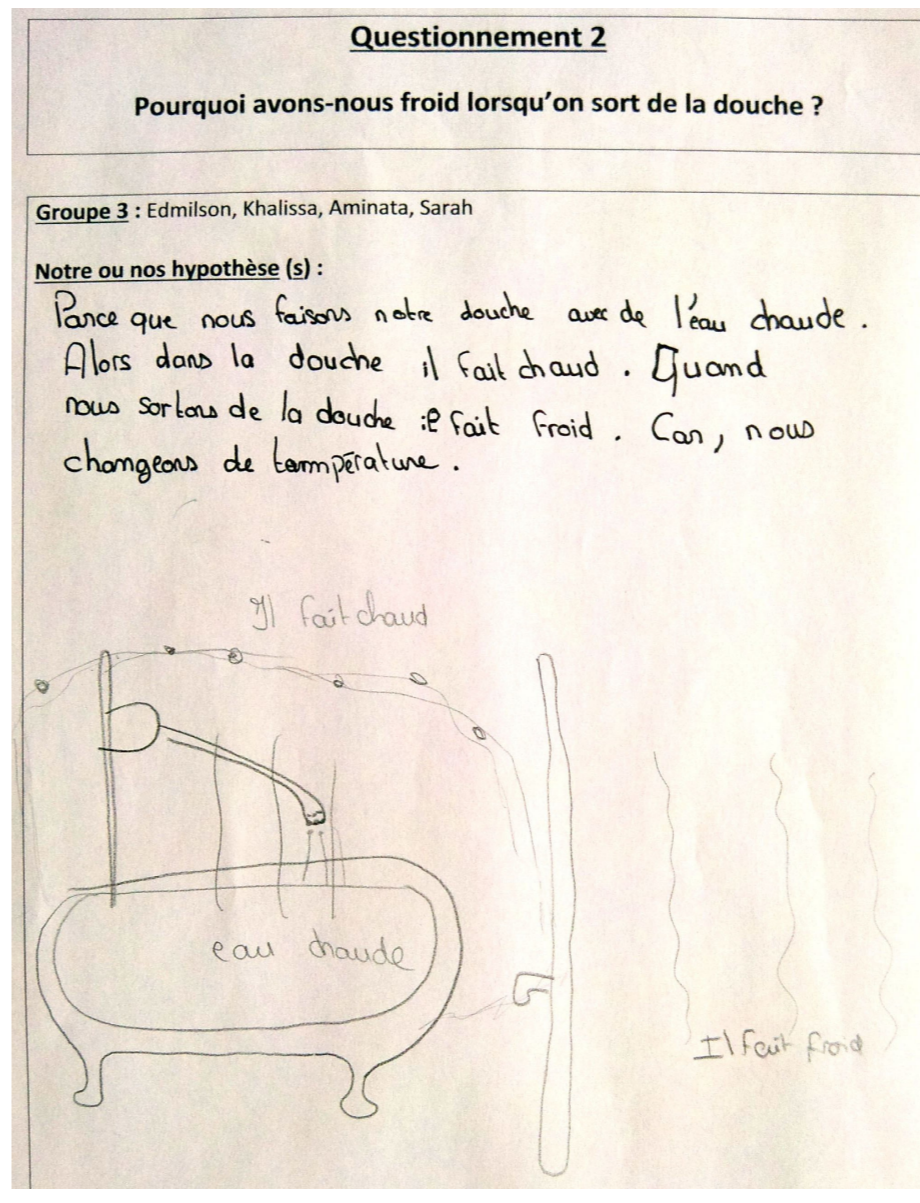 Questionnement 2
Pourquoi avons-nous froid lorsqu'on sort de la douche ?
Groupe 3 : Edmilson, Khalissa, Aminata, Sarah
Notre ou nos hypothèse (s) :
Parce que nous faisons notre douche avec de l'eau chaude.
Alors dans la douche il fait chaud. Quand
nous sortons de la douche il fait froid. Car, nous
changeons de température.
Il fait chaud
eau chaude
Il fait froid